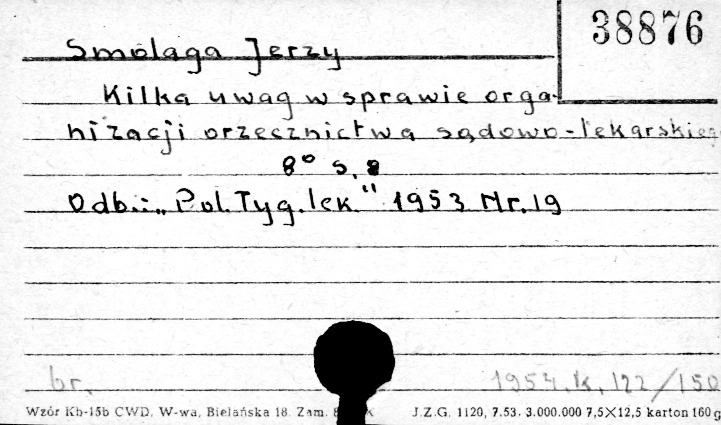 38876
Smolaga Jerzy
Kilka uwag w sprawie orga-
nizacji orzecznictwa sądowo-lekarskieg
8° s. 8
Odb.: „Pol. Tyg. lek." 1953 Nr. 19
br. 1954. K. 122/150
Wzór Kb-15b CWD, W-wa, Bielańska 18. Zam. J.Z.G. 1120, 7.53. 3.000.000 7,5×12,5 karton 160 g